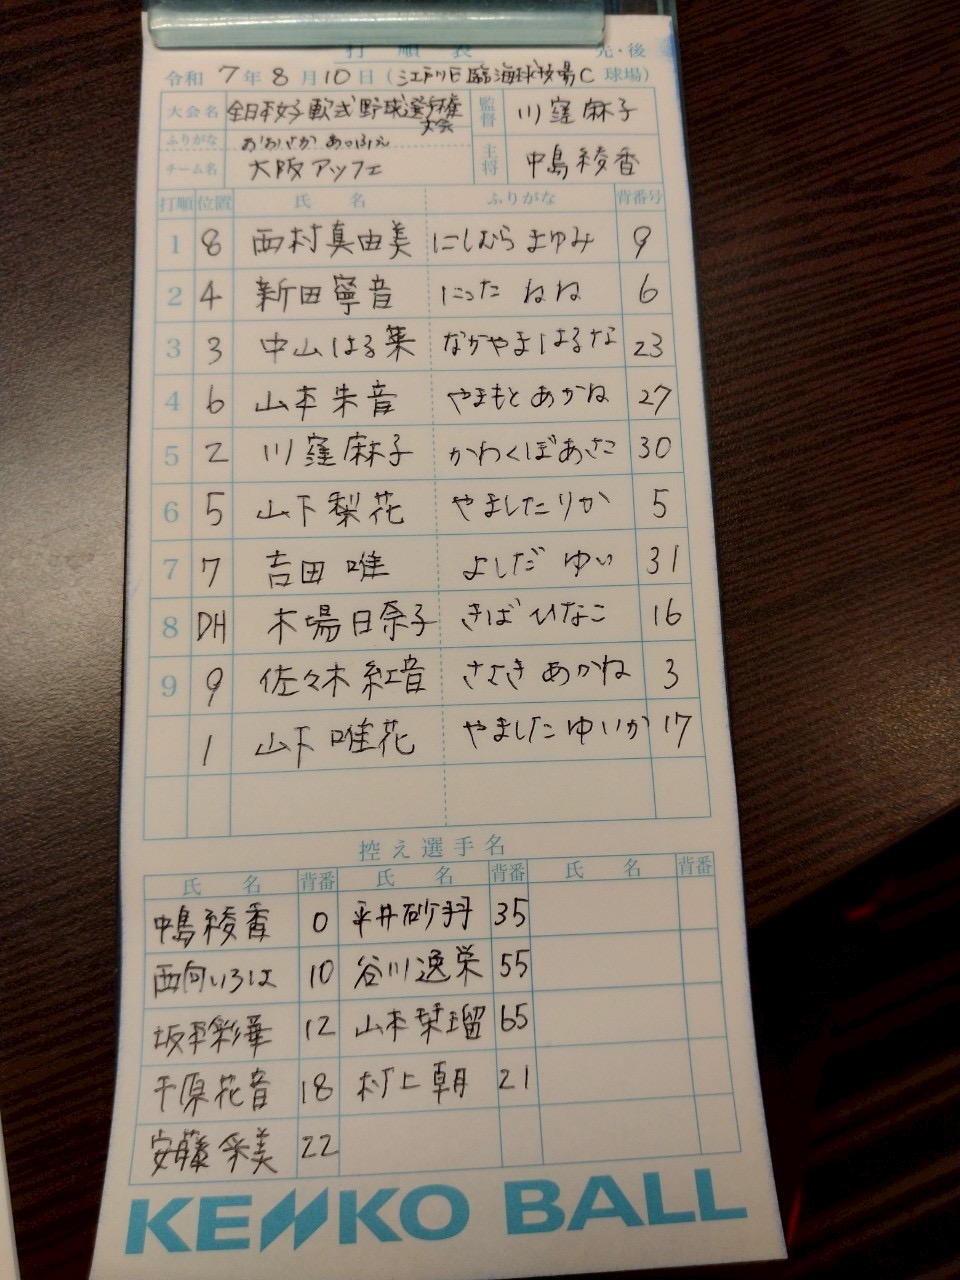 打順表 先・後
令和 7年 8月 10日 (江戸川区臨海球技場C 球場)
大会名 全日本女子軟式野球選手権大会 監督 川窪麻子
ふりがな おおさか あっふぇ
チーム名 大阪アッフェ 主将 中島綾香
打順 位置 氏名 ふりがな 背番号
1 8 西村真由美 にしむら まゆみ 9
2 4 新田寧音 にった ねね 6
3 3 中山はる菜 なかやまはるな 23
4 6 山本朱音 やまもと あかね 27
5 2 川窪麻子 かわくぼあさこ 30
6 5 山下梨花 やましたりか 5
7 7 吉田 唯 よしだ ゆい 31
8 DH 木場日奈子 きば ひなこ 16
9 9 佐々木紅音 ささき あかね 3
1 山下唯花 やました ゆいか 17
控え選手名
氏名 背番 氏名 背番 氏名 背番
中島綾香 0 平井砂羽 35
西向いろは 10 谷川逸栄 55
坂平彩華 12 山本栞瑠 65
千原花音 18 村上朝 21
安藤采美 22
KENKO BALL